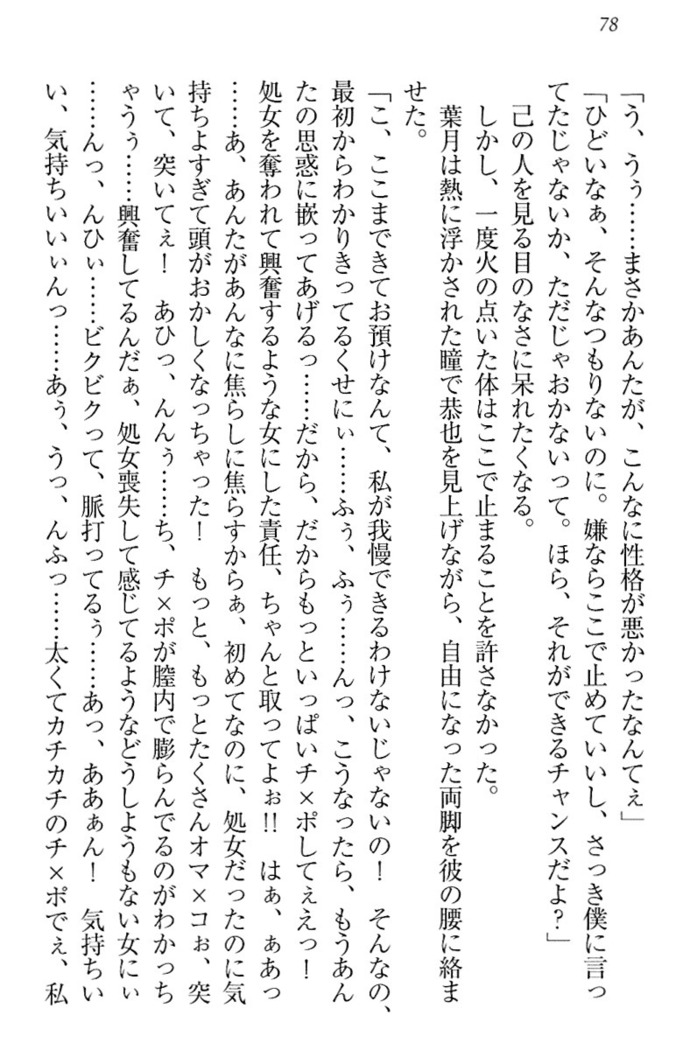 78
「う、うぅ……まさかあんたが、こんなに性格が悪かったなんてぇ」
「ひどいなぁ、そんなつもりないのに。嫌ならここで止めていいし、さっき僕に言っ
てたじゃないか、ただじゃおかないって。ほら、それができるチャンスだよ？」
己の人を見る目のなさに呆れたくなる。
しかし、一度火の点いた体はここで止まることを許さなかった。
葉月は熱に浮かされた瞳で恭也を見上げながら、自由になった両脚を彼の腰に絡ま
せた。
「こ、ここまできてお預けなんて、私が我慢できるわけないじゃないの！　そんなの、
最初からわかりきってるくせにぃ……ふぅ、ふぅ……んっ、こうなったら、もうあん
たの思惑に嵌ってあげるっ……だから、だからもっといっぱいチ×ポしてぇえっ！
処女を奪われて興奮するような女にした責任、ちゃんと取ってよぉ!!　はぁ、ぁあっ
……あ、あんたがあんなに焦らしに焦らすからぁ、初めてなのに、処女だったのに気
持ちよすぎて頭がおかしくなっちゃった！　もっと、もっとたくさんオマ×コぉ、突
いて、突いてぇ！　あひっ、んんぅ……ち、チ×ポが膣内で膨らんでるのがわかっち
ゃうぅ……興奮してるんだぁ、処女喪失して感じてるようなどうしようもない女にぃ
……んっ、んひぃ……ビクビクって、脈打ってるぅ……あっ、ああぁん！　気持ちい
い、気持ちいいぃんっ……あぅ、うっ、んふっ……太くてカチカチのチ×ポでぇ、私